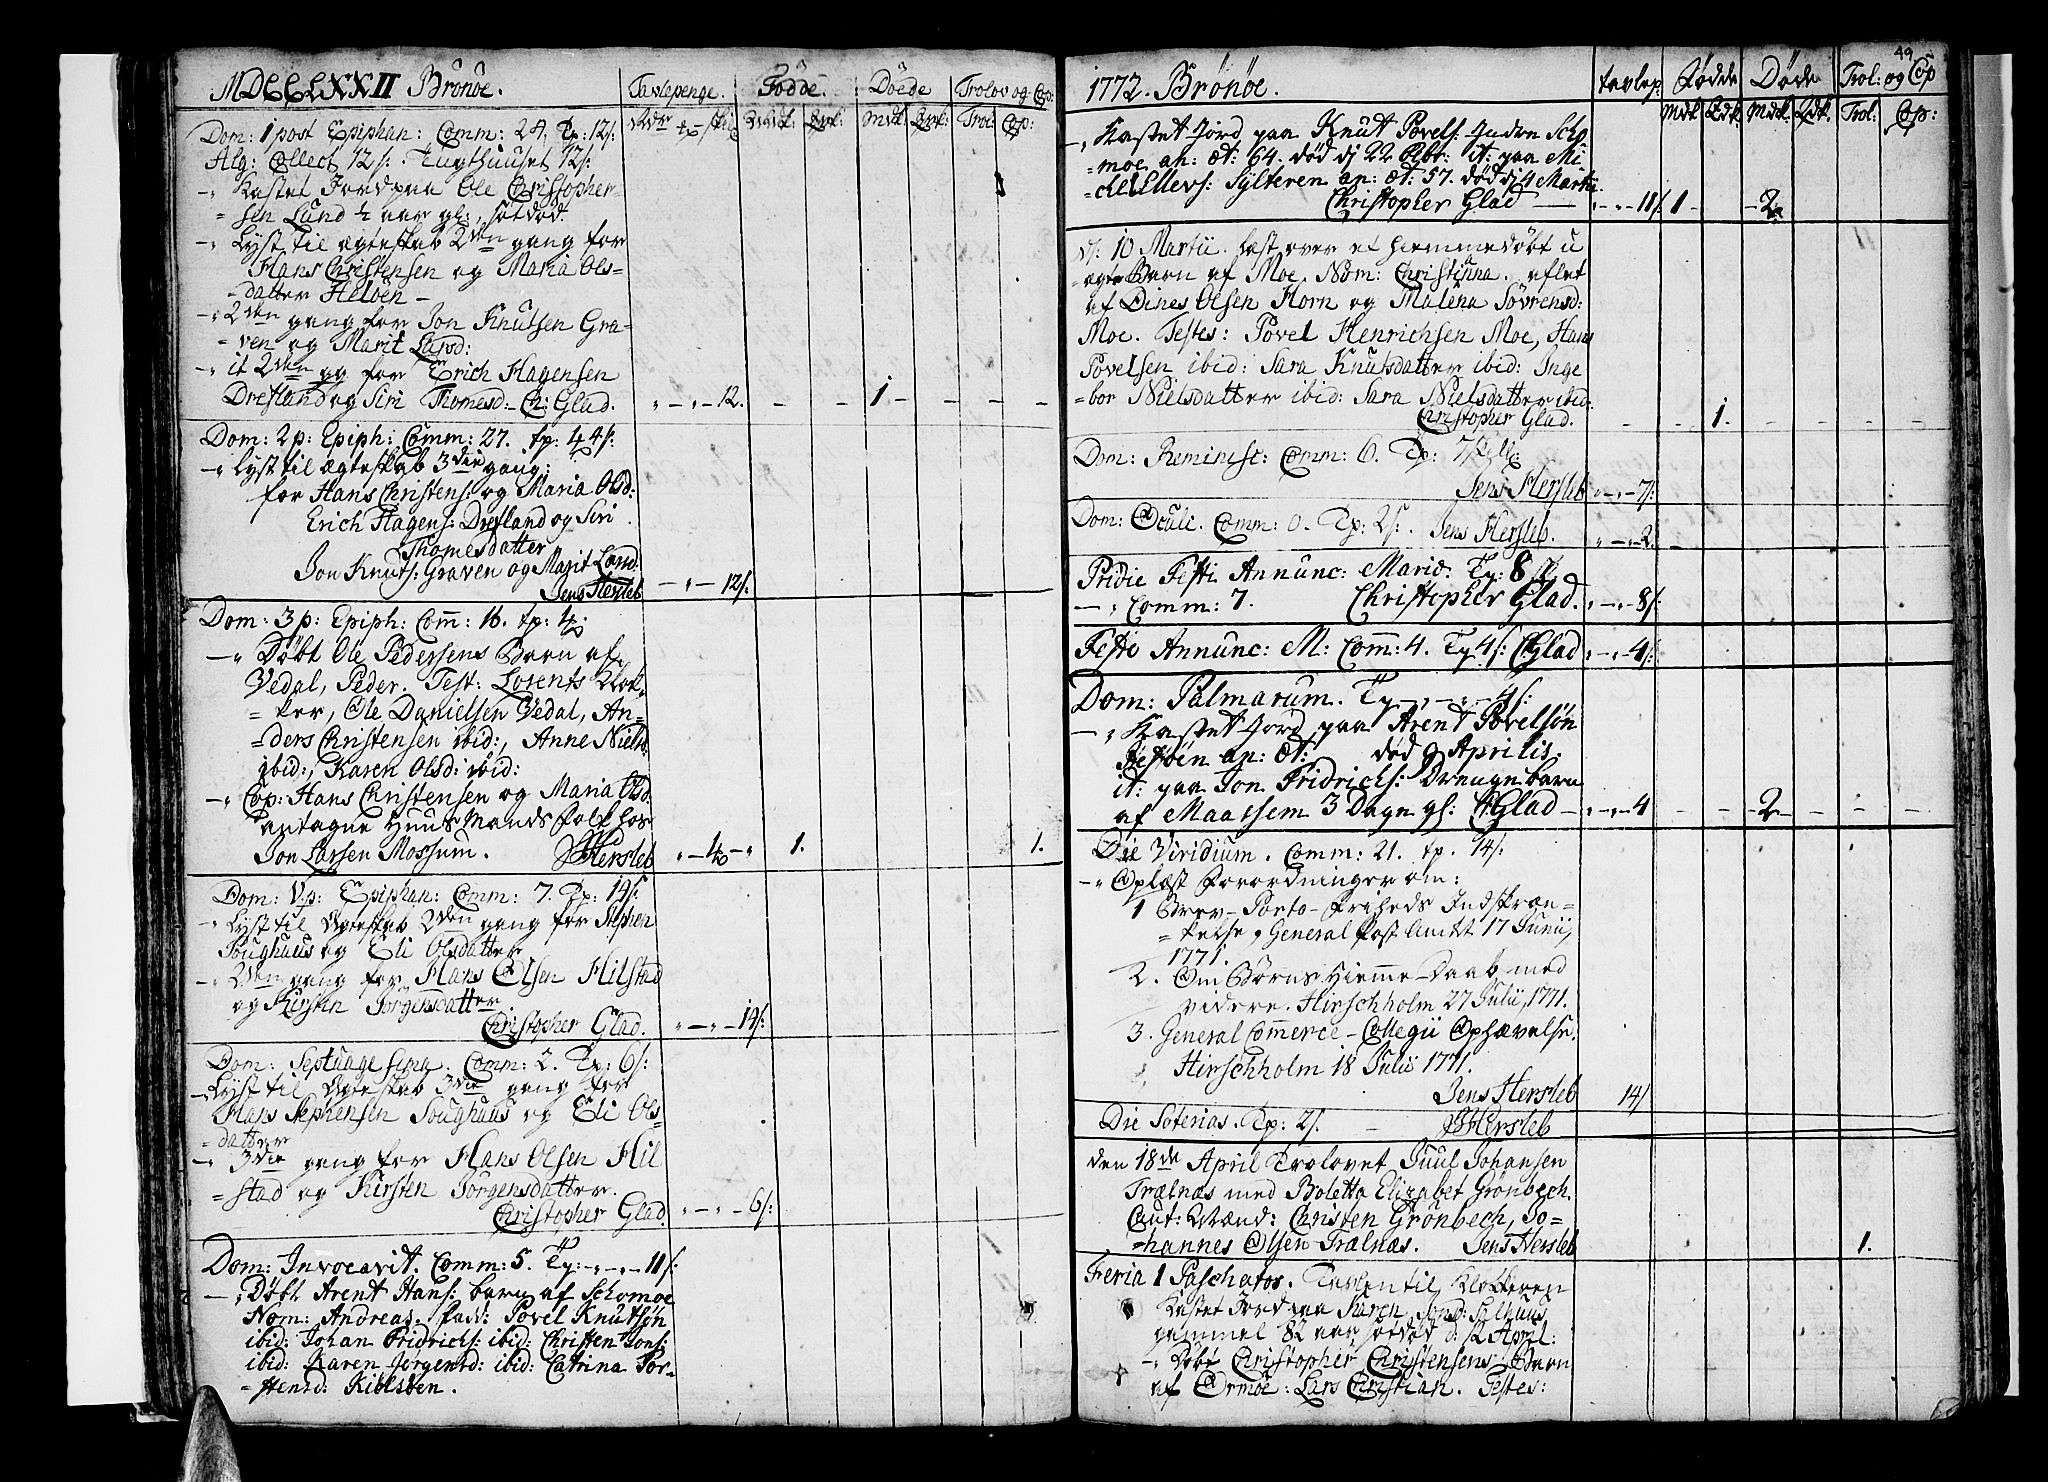 MDCCLXXII Brönöe. Tavlepenge. Födde Döede Trolov og Cop:
Rdr Mk: Qvk: Mdk: Qvk: Trol: Cop:
Dom: 1 post Epiphan: Comm: 24, Tp: 12 s:
Alg: Collect 12 s: Tugthuuset 12 s:
-, Kastet Jord paa Ole Christopher=
=sen Lund ½ aar gl:, sotdød.
-, Lyst til ægteskab 2den gang for
Hans Christensen og Maria Ols=
=datter
-, 2den gang for Jon Knutsen Gra=
=ven og Marit Larsd:
-, it 2den gg for Erich Hagensen
Drefland og Siri Thomesd: Ch: Glad. „ - „ - 12. - - 1 - - - -
Dom: 2 p: Epiph: Comm: 27. Tp: 44 s:
-, Lyst til ægteskab 3die gang:
for Hans Christens: og Maria Olsd:
Erich Hagens: Drefland og Siri
Thomesdatter
Jon Knuts: Graven og Marit Larsd:
Jens Hersleb - „ - 12 s:
Dom: 3 p: Epiph: Com̄: 16. tp: 4
-, Døbt Ole Pedersens Barn af
Vedal, Peder. Test: Lorents Klok=
=ker, Ole Danielsen Vedal, An=
=ders Christensen ibid:, Anne Nielsd:
ibid:, Karen Olsd: ibid:
-, Cop: Hans Christensen og Maria Olsd:
antagne Huus Mands Folk hos
Jon Larsen Mossum. JHersleb „ - 4 - „ 1. 1.
Dom: V. p: Epiphan: Comm: 7. Tp: 14 s:
-, Lyst til Ægteskab 2den gang for Stephen
Soughuus og Eli Olsdatter
-, 2den gang for Hans Olsen Hilstad
og Kirsten Jørgensdatter
Christopher Glad. „ - „ - 14 s:
Dom: Septuagesima. Comm: 2. Tp: 6 s:
-, Lyst til Ægteskab 3die gang for
Hans Stephensen Soughuus og Eli Ols=
=datter
-, 3die gang for Hans Olsen Hil
=stad og Kirsten Jørgensdatter.
Christopher Glad „ - „ - 6 s:
Dom: Invocavit. Comm: 5. Tp: - „ - „ - 11 s:
-, Døbt Arent Hans: barn af Schomoe
Nom: Andreas. Fadd: Povel Knutsøn
ibid: Johan Fridrichs: ibid: Christen Jons:
ibid: Karen Jørgensd: ibid: Catrina Tor=
=stensd:
49
1772. Brönöe. tavlep: Födde Döde Trol: og Cop
Mdk Qdk: Mdk: Qdk: Trol: Cop:
-, Kastet Jord paa Knut Povels: Indre Scho
=moe an: æt: 64. død dj 22 Febr: it: paa Mi
=chel Ellevs: Sylteren an: æt: 57. død dj 4 Martii.
Christopher Glad — „ - „ - 11 s: 1 - - 2
d: 10 Martii. læst over et hiemmedøbt u
ægte Barn af Moe. Nom: Christinna. aflet
af Dines Olsen Horn og Malena Sövrensd:
Moe. Testes: Povel Henrichsen Moe, Hans
Povelsen ibid: Sara Knutsdatter ibid: Inge
=bor Nielsdatter ibid: Sara Nielsdatter ibid:
Christopher Glad. - - 1. - - - -
Dom: Reminisc: Comm: 6. Tp: 7 skill:
Jens Hersleb „ - „ - 7 s:
Dom: Oculi. Comm: 0. Tp: 2 s: Jens Hersleb. „ - „ - 2. -
Pridie Festi Annunc: Mariæ. Tp: 8 s
-, Comm: 7. Christopher Glad. „ - „ - 8 s:
Festo Annunc: M: Com̄: 4. Tp 4 s: CGlad „ - „ - 4 s:
Dom: Palmarum. Tp - „ - „ - 4 s:
-, Kastet Jord paa Arent Povelsøn
an: æt: død 9 Aprilis.
it: paa Jon Fridrichs: Drengebarn
af Maatsem 3 Dage gl: CGlad - „ - „ - 4 - - - 2 - - -
Die Viridium. Comm: 21. tp. 14 s:
-, Oplæst Forordninger om:
1 Brev-Porto-Friheds Indskræn=
=kelse, General Post Amtet 17 Junii,
1771.
2. Om Børns Hiemme-Daab med
videre. Hirschholm 27 Julii, 1771.
3. General Commerce-Collegii Ophævelse.
Hirschholm 18 Julii 1771.
Jens Hersleb 14 s
Die Soterias. Tp: 2 s. JHersleb
den 18de April Trolovet Juul Johansen
Trælnæs med Boletta Elizabet Grönbech.
Caut: Mænd: Christen Grönbech, Jo=
=hannes Olsen Trælnæs. Jens Hersleb 1.
Feria 1 Paschatos. Tavlen til Klokkeren
Kastet Jord paa Karen
gammel 82 aar, sotdød d: 12 April:
-, Døbt Christopher Christensens Barn
af Ormöe: Lars Christian. Testes: